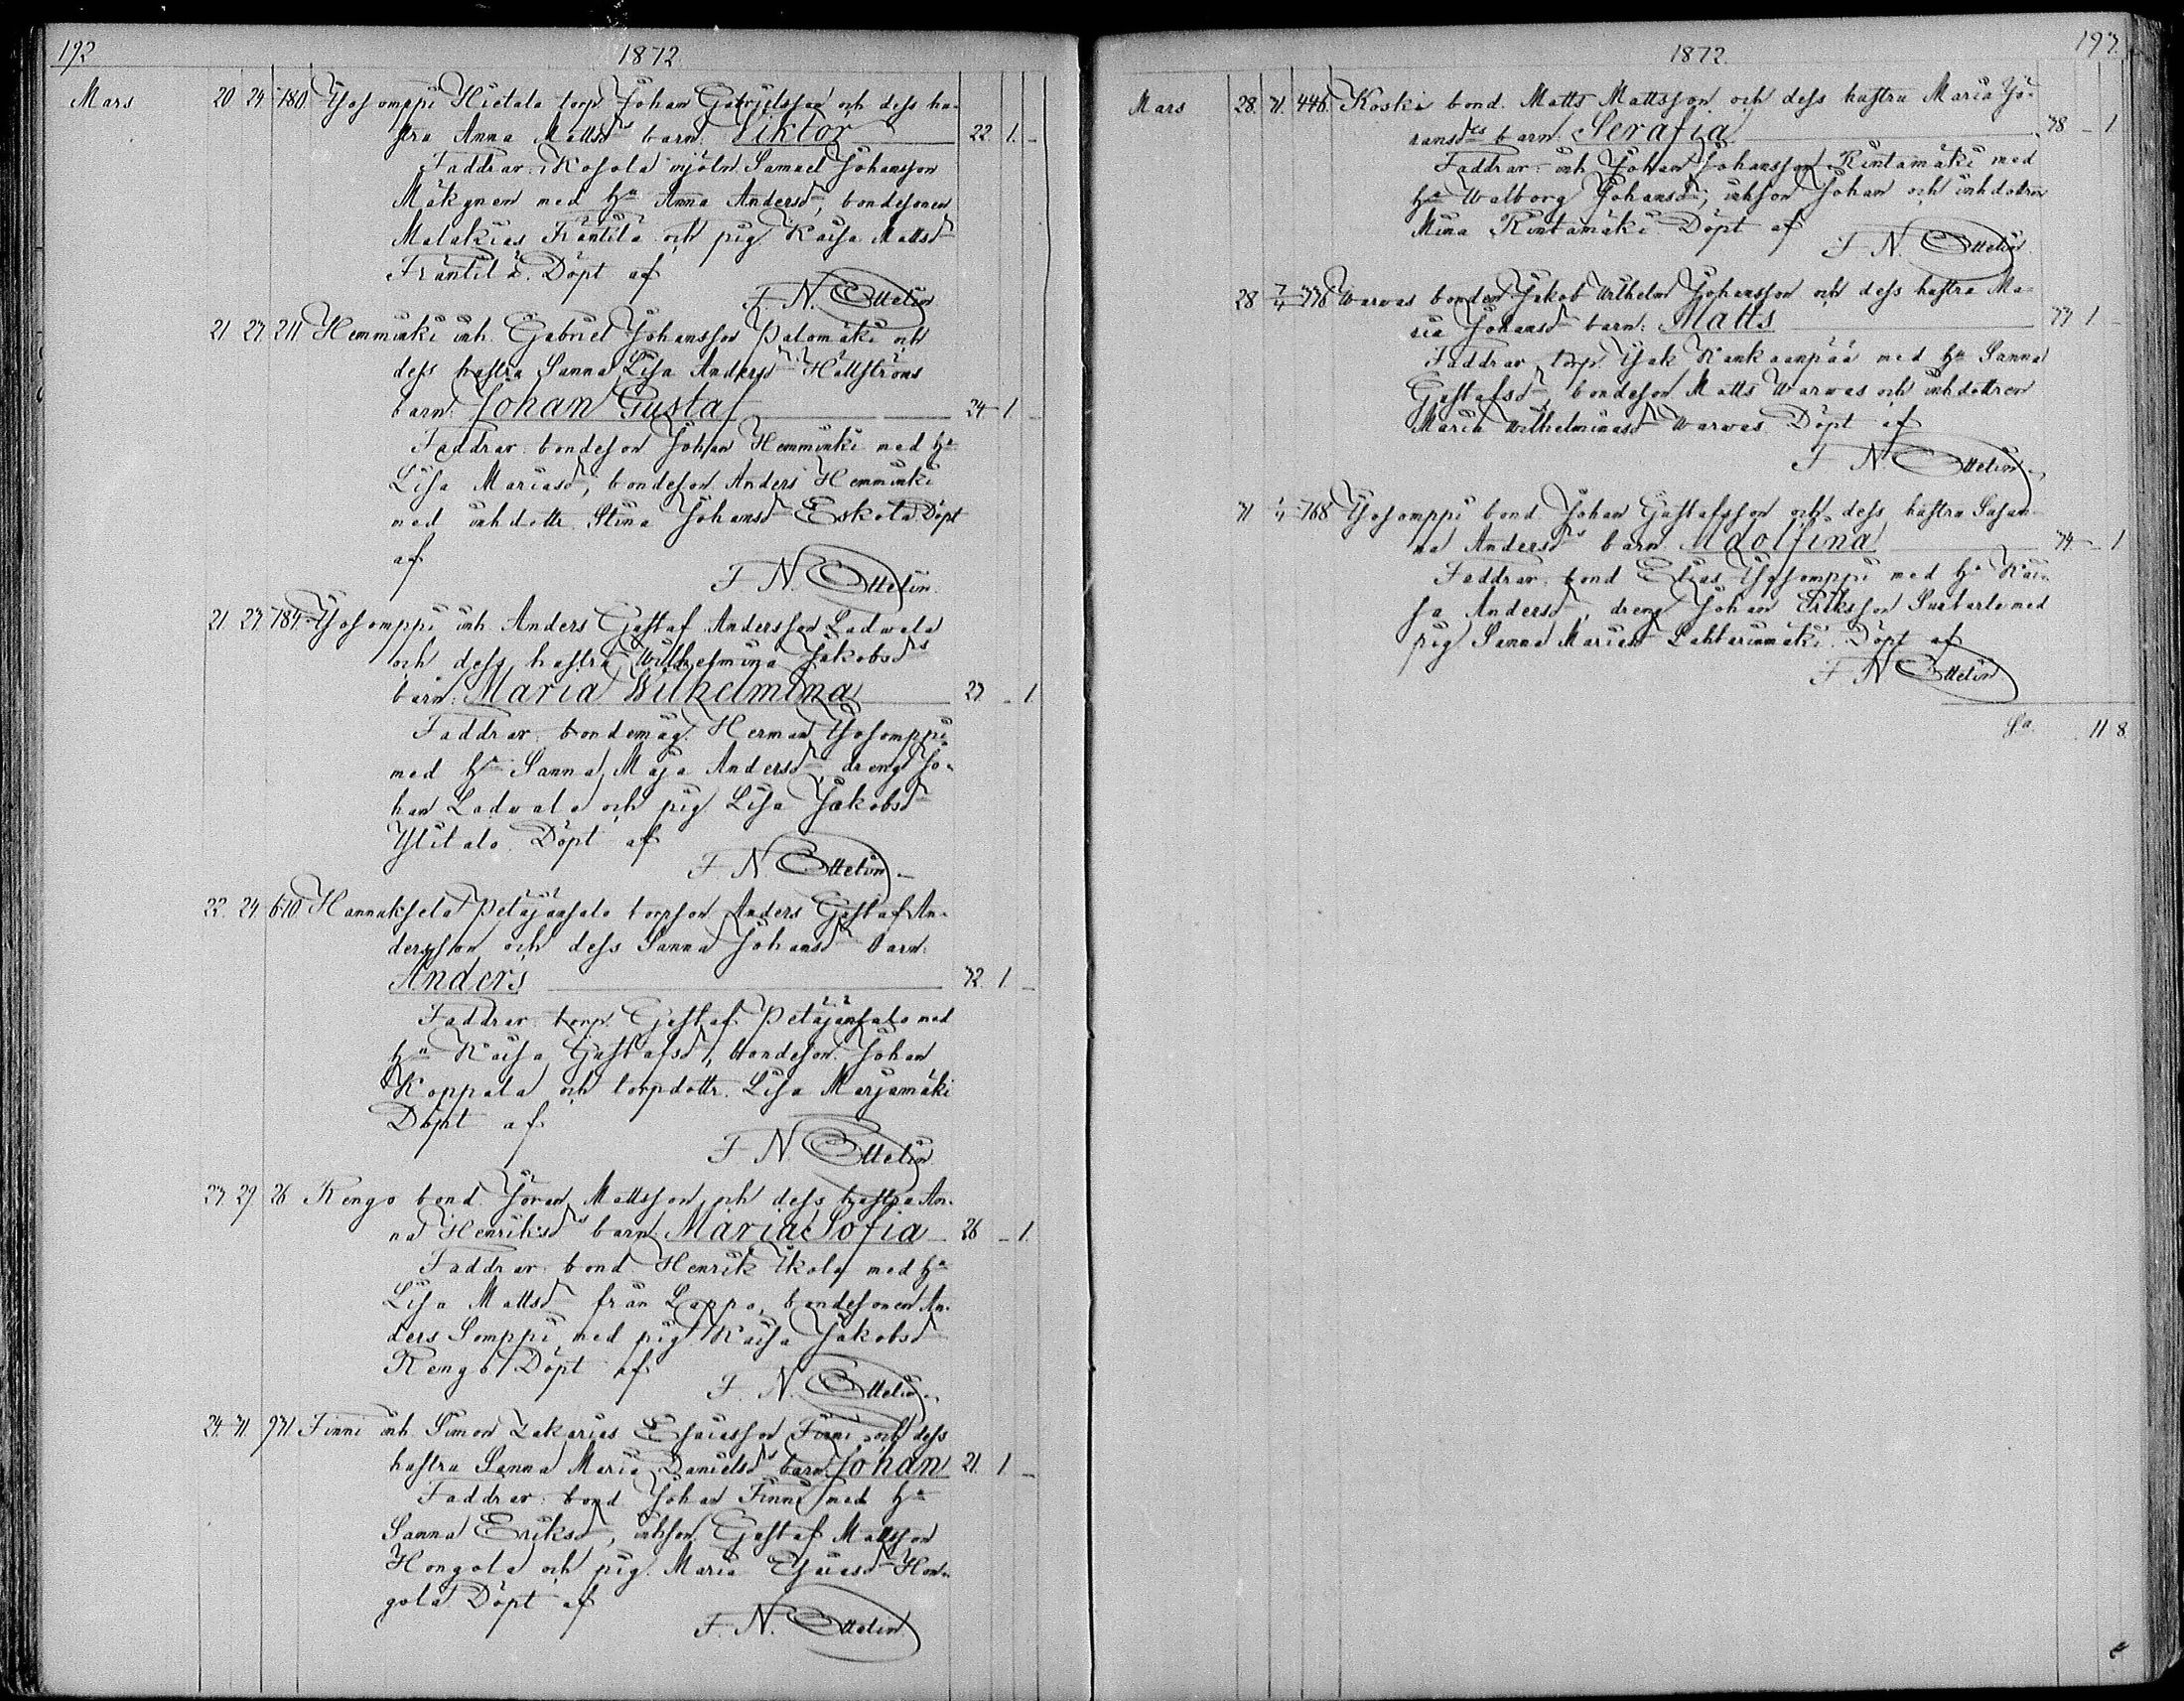 192
1872.
Mars 20 24 180. Ylisomppi Hietala torp. Johan Gabrielsson och dess hu-
stru Anna Mattsdrs barn: Viktor 22. 1. -
Faddrar: Kosola mjöln. Samuel Johansson
med hu Anna Andersdr, bondesonen
Malakias Fräntilä och pig. Kaisa Mattsdr
Fräntilä. Döpt af
F. N. Ottelin
21 27. 211 Hemminki inh. Gabriel Johansson Palomäki och
dess hustru Sanna Lisa Andersdr Hällströms
barn: Johan Gustaf 24 1 -
Faddrar: bondeson Johan Hemminki med hu
Lisa Mariasdr, bondeson Anders Hemminki
med inhdottr. Stina Johansdr Eskola Döpt
af
F. N. Ottelin.
21. 27. 184. Ylisomppi inh. Anders Gustaf Andersson Ladwala
och dess hustru Wilhelmina Jakobsdrs
barn: Maria Wilhelmina 27. - 1.
Faddrar: bondemåg. Herman Ylisomppi
med hu Sanna Maja Andersdr, dreng Jo-
han Ladwala och pig Lisa Jakobsdr
Ylitalo. Döpt af
F. N. Ottelin
22. 24 610 Hannuksela Petäjänsalo torpson Anders Gustaf An-
dersson och dess Sanna Johansdr barn:
Anders 32. 1 -
Faddrar: torp. Gustaf Petäjänsalo med
hu Kaisa Gustafsdr, bondeson Johan
Koppala och torpdottr. Lisa Marjamäki
Döpt af
F. N. Ottelin
23. 29. 26 Rengo bond. Jöran Mattsson och dess hustru An-
na Henriksdrs barn: Maria Sofia 26 - 1.
Faddrar: bond. Henrik Ukola med hu
Lisa Mattsdr från Lappo, bondesonen An-
ders Somppi med pig. Kaisa Jakobsdr
Rengo Döpt af
F. N. Ottelin
24. 31. 931. Finni inh. Simon Zakarias Esaiasson Finni och dess
hustru Sanna Maria Danielsdrs barn: Johan 21. 1 -
Faddrar: bond. Johan Finni med hu
Sanna Eriksdr, inhson Gustaf Mattsson
Hongola och pig. Maria Esaiasdr Hon-
gola Döpt af
F. N. Ottelin
193.
1872.
Mars 28. 31. 446. Koski bond. Matts Mattsson och dess hustru Maria Jö-
ransdrs barn: Serafia 38 - 1
Faddrar: inh Johan Johansson Rintamäki med
hu Walborg Johansdr, inhson Johan och inhdottren
Mina Rintamäki. Döpt af
F. N. Ottelin
28 2/4 376 Warwas bonden Jakob Wilhelm Johansson och dess hustru Ma-
ria Johansdr barn: Matts 33 1 -
Faddrar torp. Isak Kankaanpää med hu Sanna
Gustafsdr, bondeson Matts Warwas och inhdottren
Maria Wilhelminasdr Warwas. Döpt af
F. N. Ottelin
31 1/4 168 Ylisomppi bond Johan Gustafsson och dess hustru Susan-
na Andersdrs barn Adolfina 34 - 1
Faddrar: bond Elias Ylisomppi med hu Kai-
sa Andersdr, dreng Johan Eriksson med
pig Sanna Mariasdr Lahtarinmäki. Döpt af
F. N. Ottelin
S:a. 11 8.